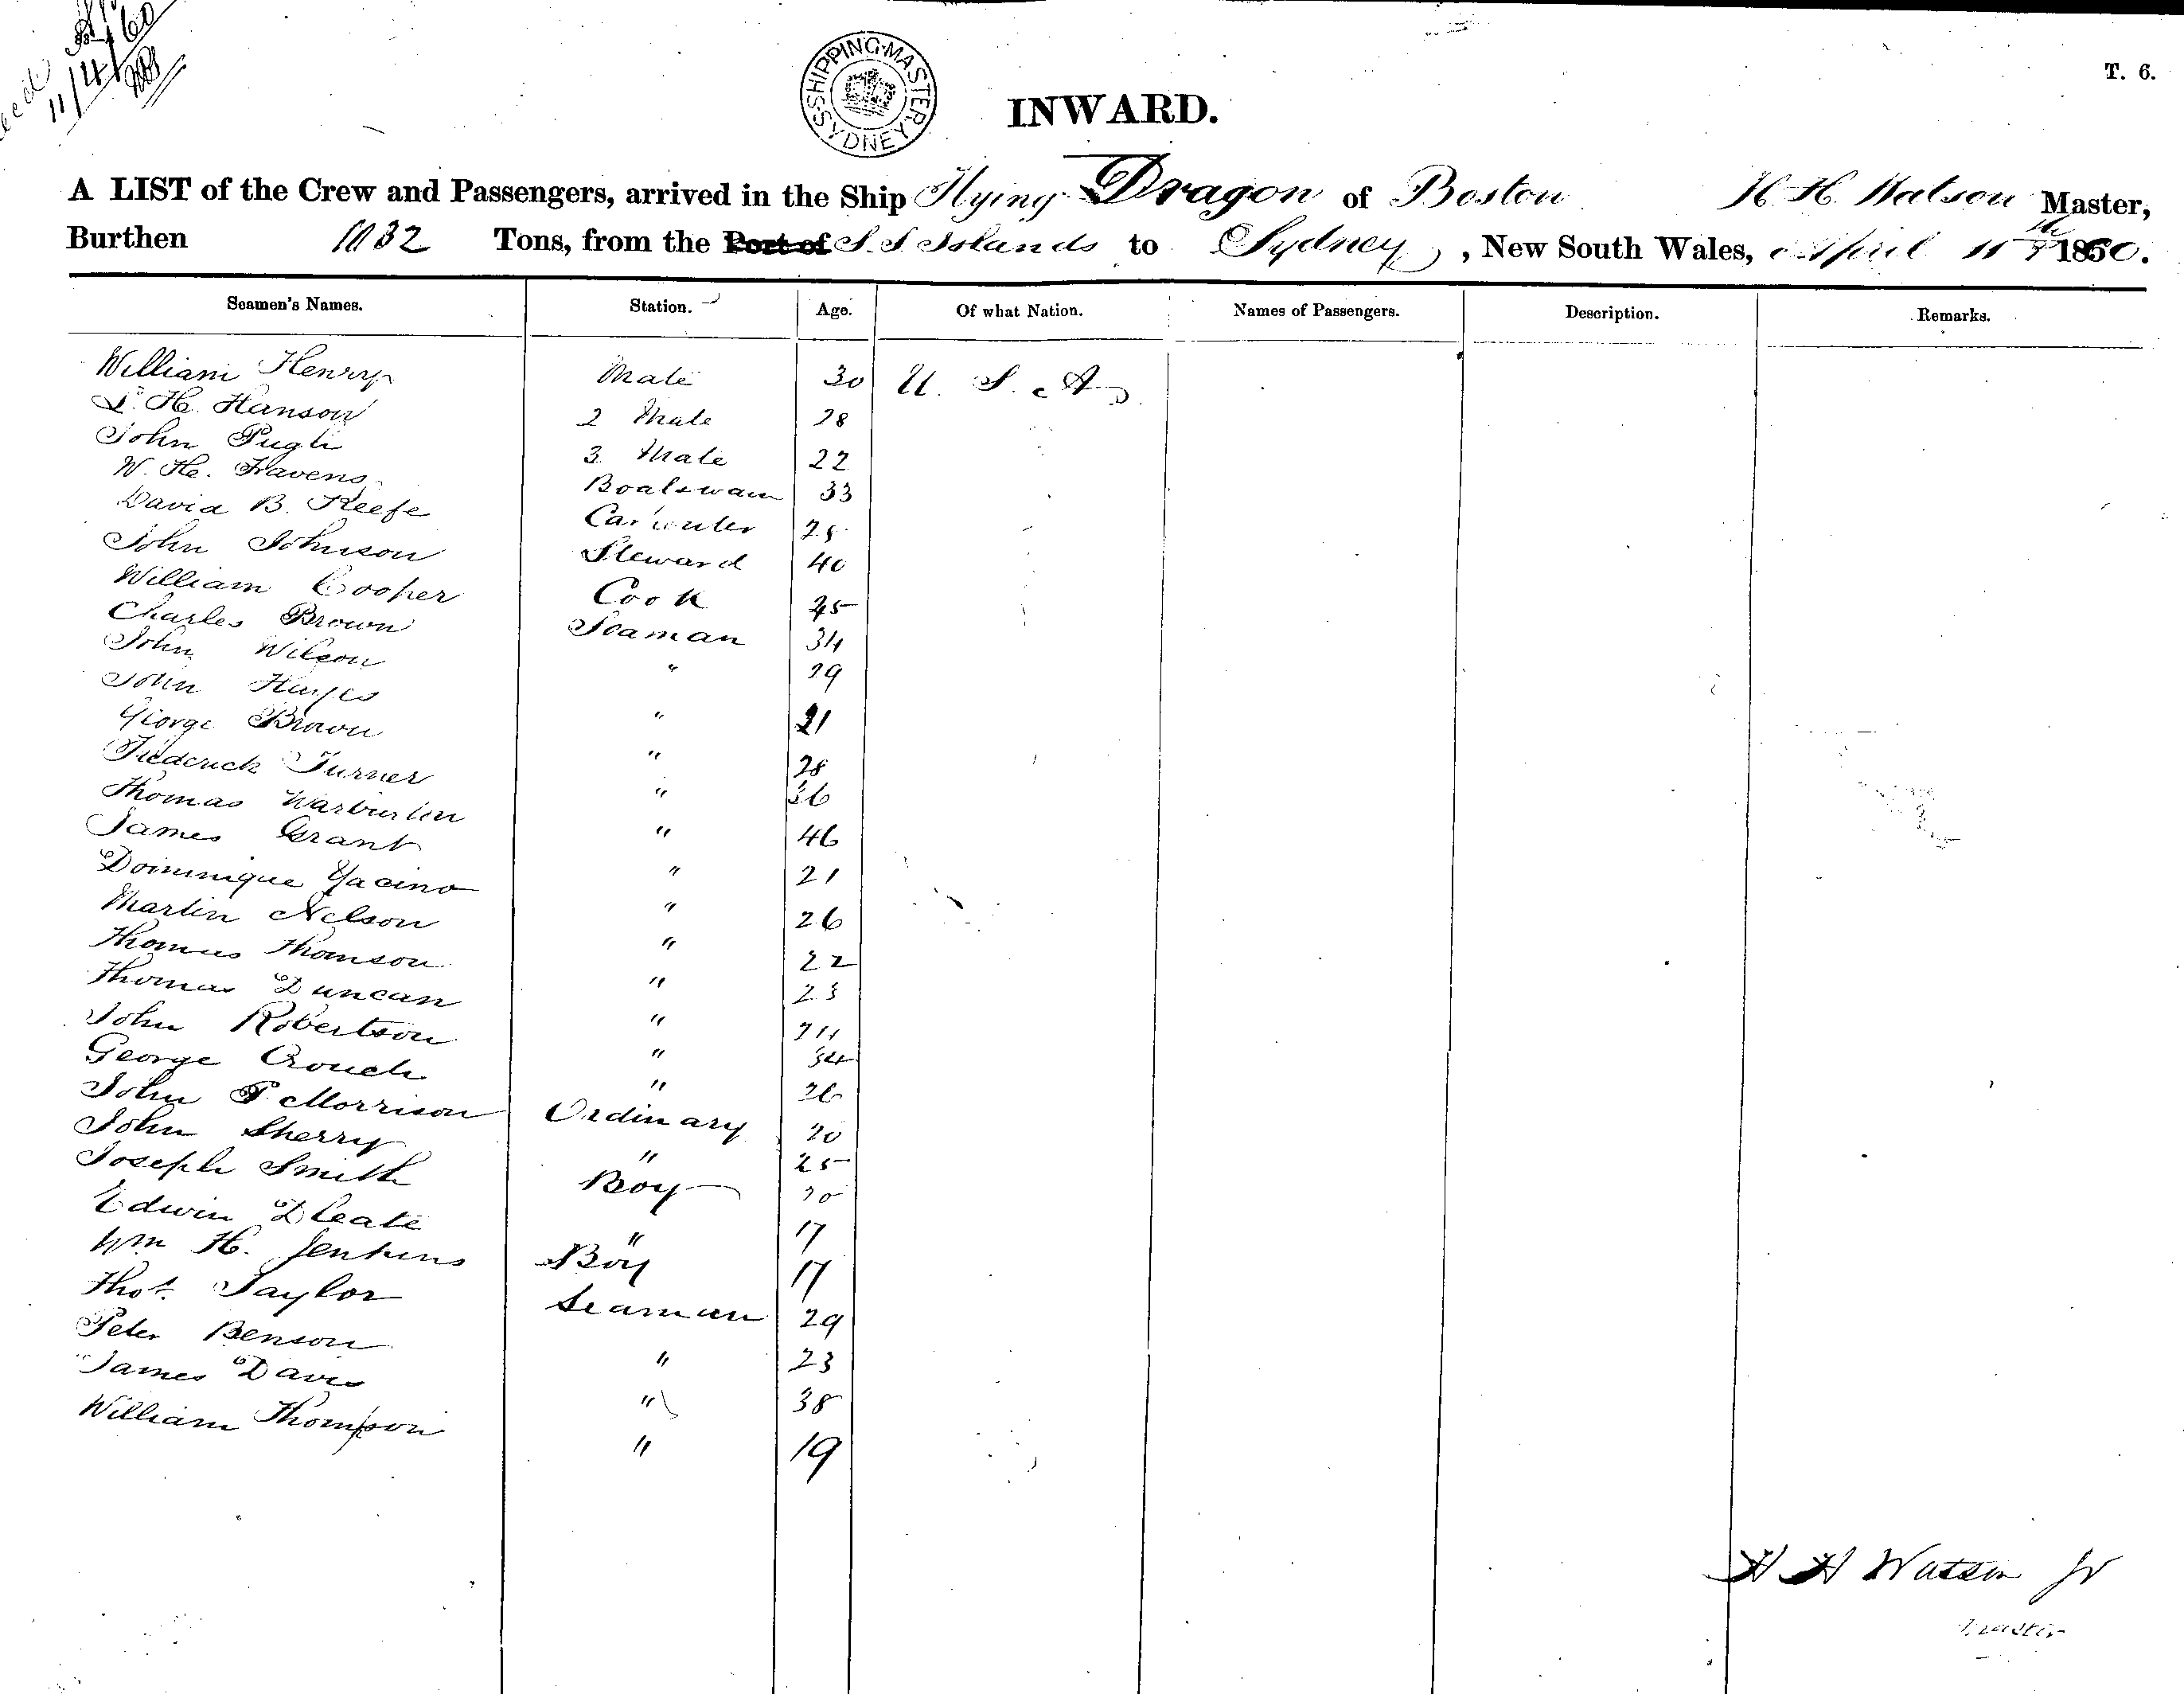 11/4/60
SHIPPING MASTER SYDNEY
T. 6.
INWARD.
A LIST of the Crew and Passengers, arrived in the Ship Flying Dragon of Boston H. H. Watson Master,
Burthen 1032 Tons, from the Port of S. S. Islands to Sydney, New South Wales, April 11th 1860.
Seamen's Names. Station. Age. Of what Nation. Names of Passengers. Description. Remarks.
William Henry Mate 30 U. S. A
H. Hanson 2 Mate 28
John Pugh 3 Mate 22
W. H. Havens Boatswain 33
David B. Keefe Carpenter
John Johnson Steward 40
William Cooper Cook 45
Charles Brown Seaman 34
John Wilson " 29
John Hayes " 21
George Brown " 28
Frederick Turner " 36
Thomas Warburton " 46
James Grant " 21
Dominique Yacino " 26
Martin Nelson " 22
Thomas Thomson " 23
Thomas Duncan " 24
John Robertson " 34
George Crouch " 26
John P. Morrison Ordinary 20
John Sherry " 25
Joseph Smith Boy 20
Edwin D " 17
Wm H. Jenkins Boy 17
Thos. Taylor Seaman 29
Peter Benson " 23
James Davis " 38
William Thompson " 19
H H Watson Jr
Master